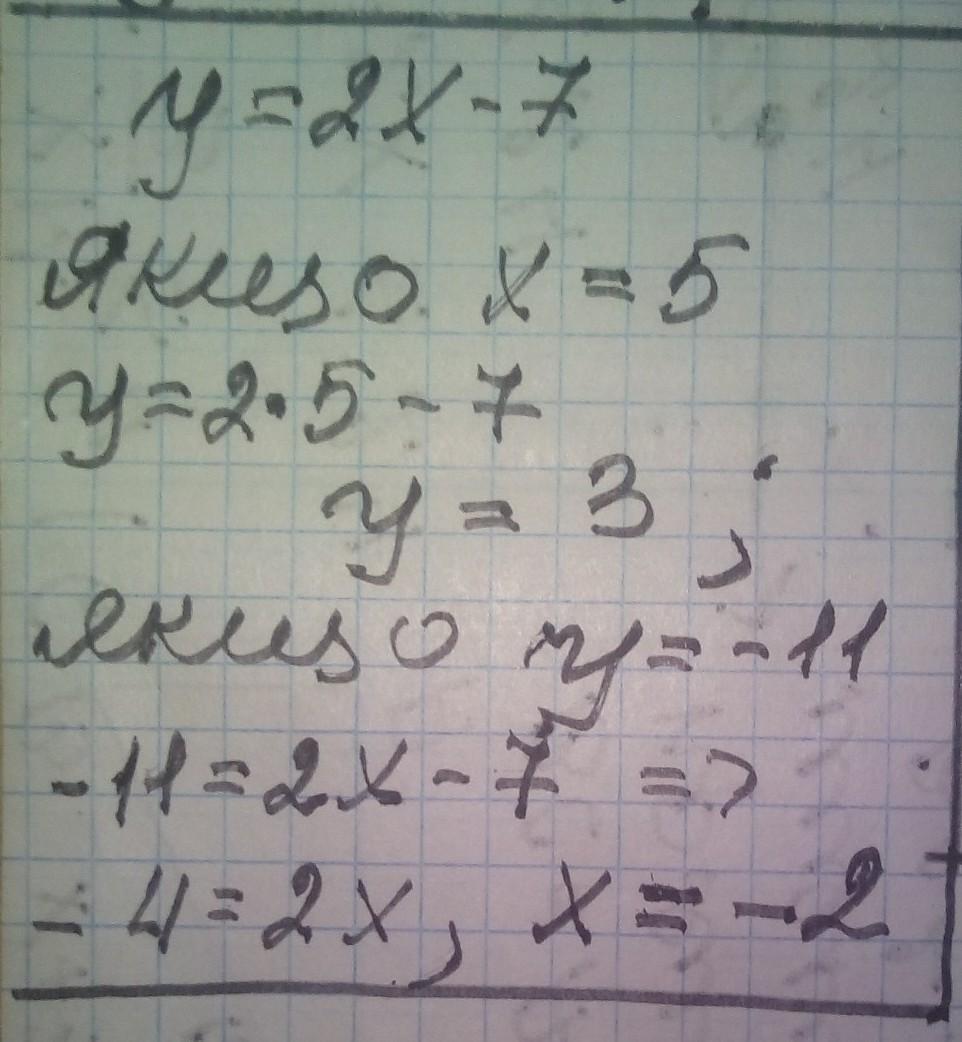 y = 2x - 7
Якщо x = 5
y = 2·5 - 7
y = 3 ;
якщо y = -11
-11 = 2x - 7 =>
-4 = 2x, x = -2